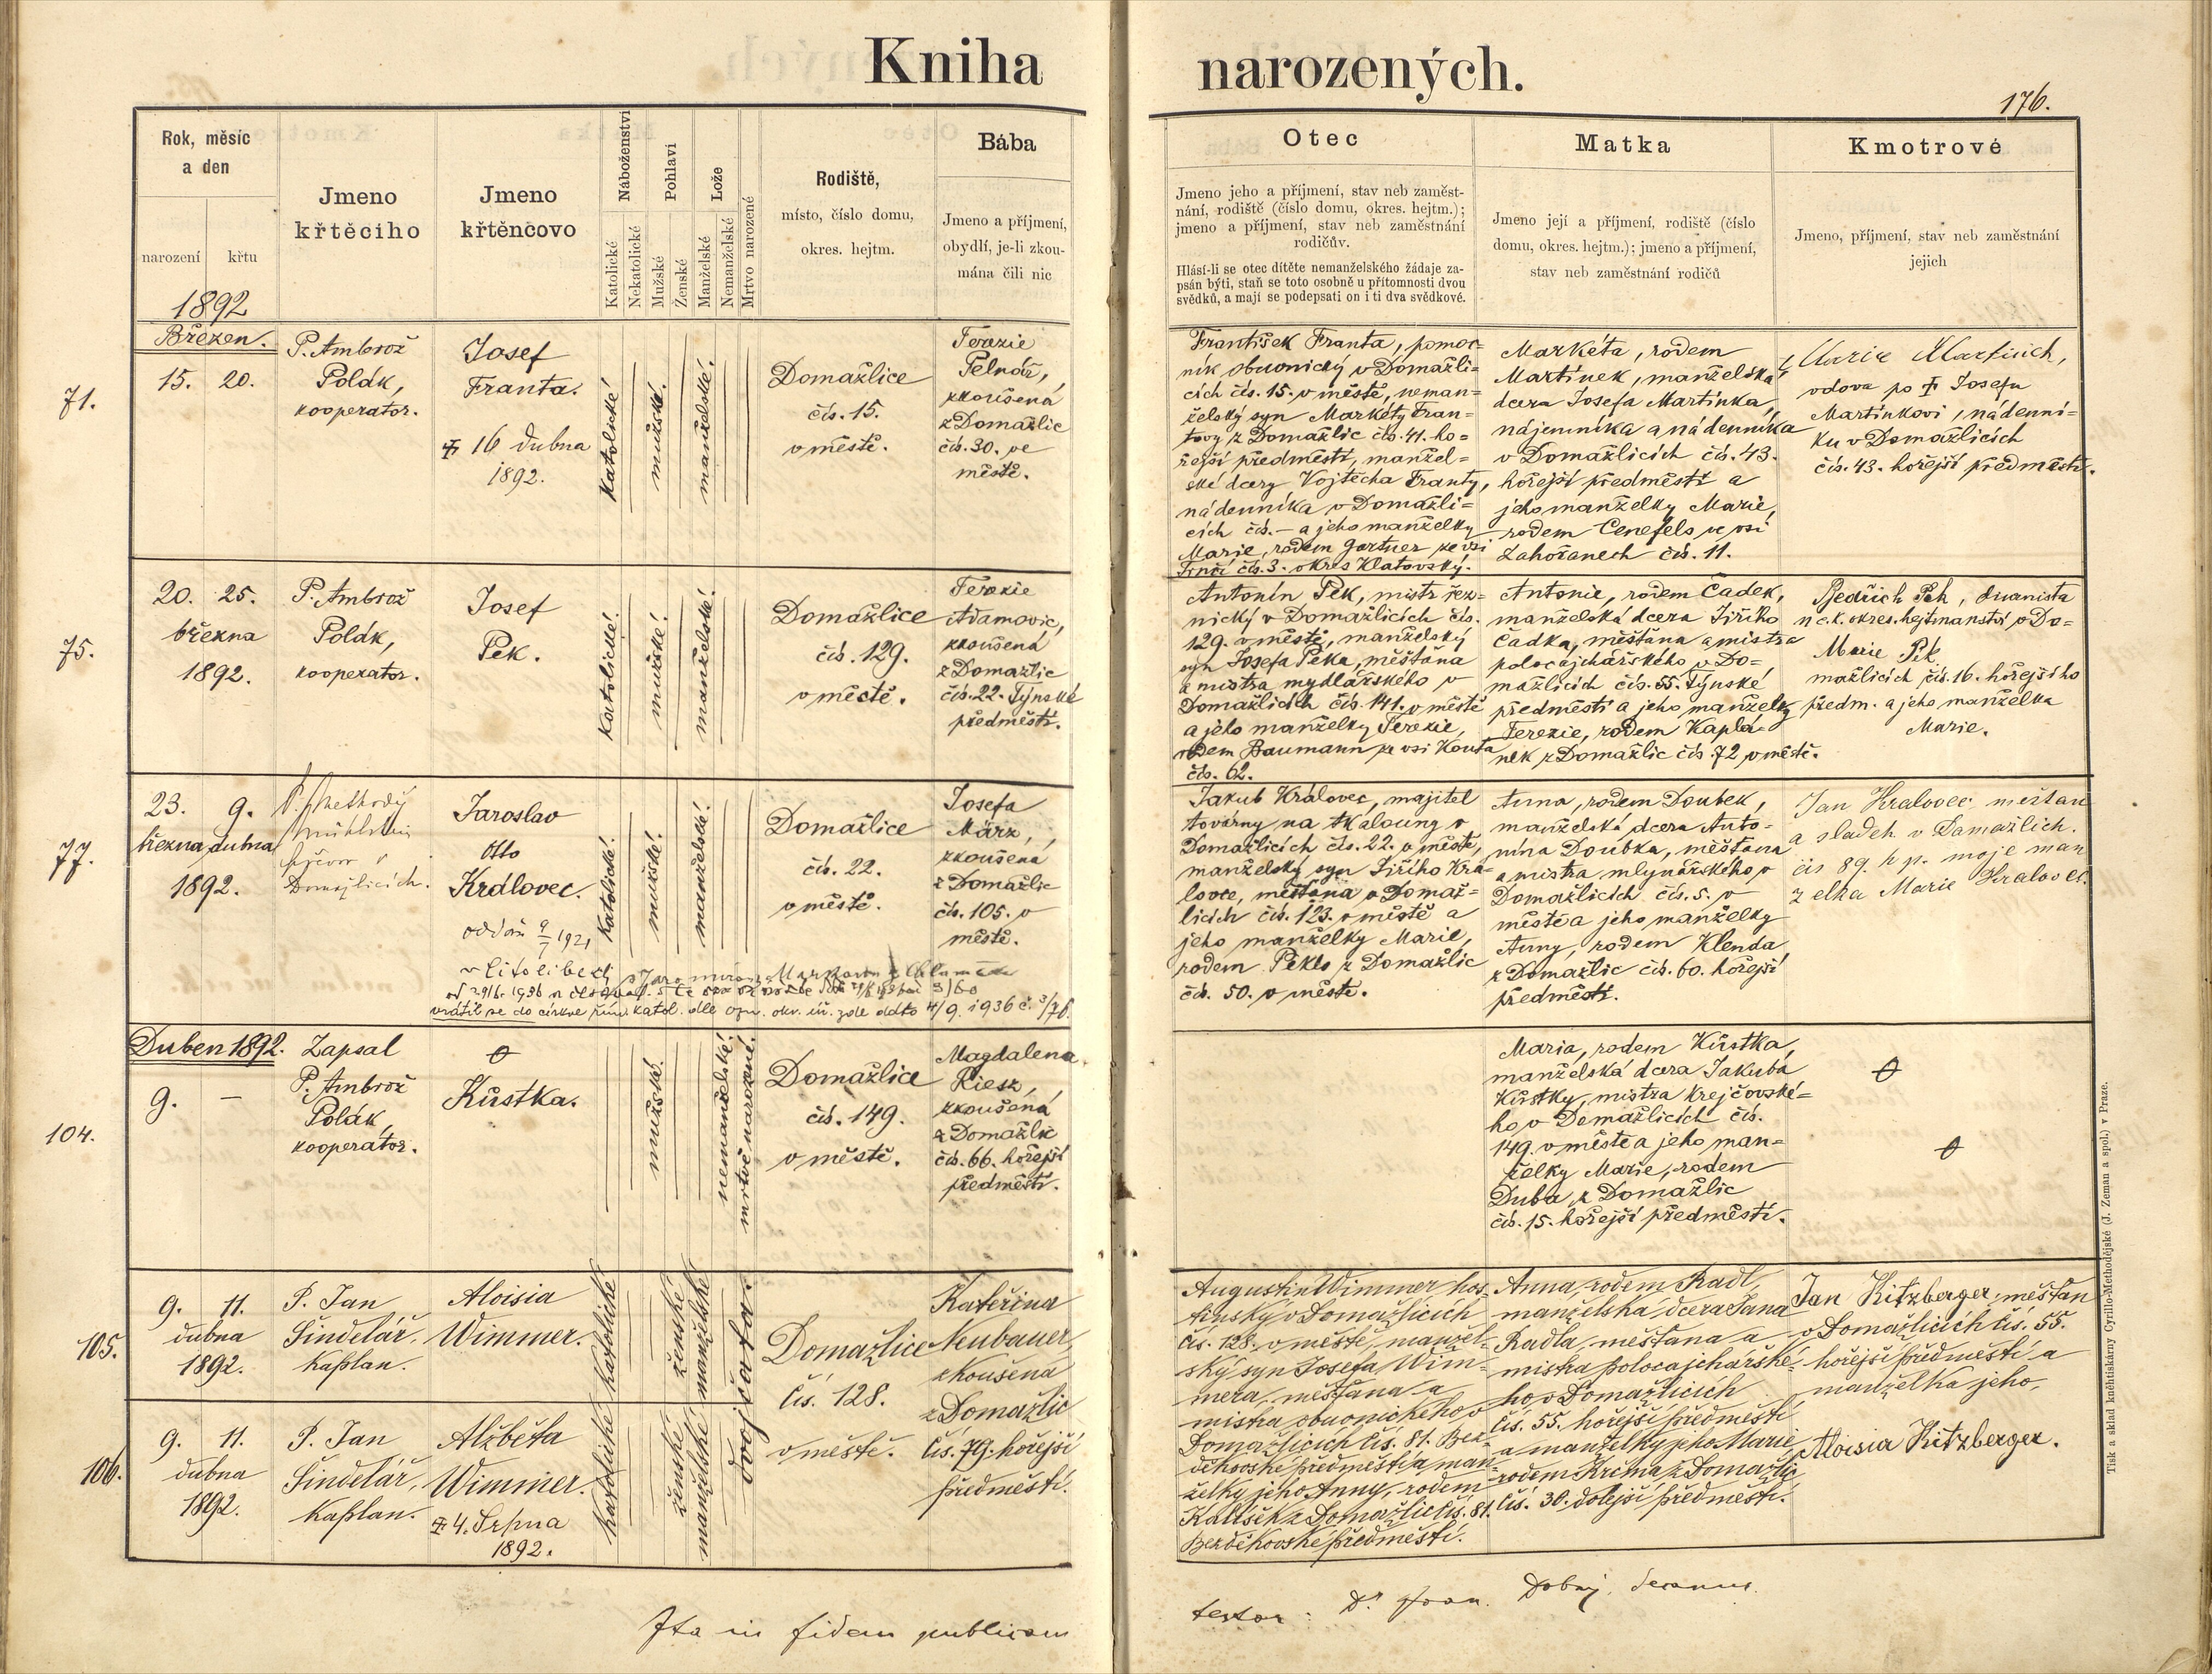 Kniha narozených.
176.
Rok, měsíc
a den
narození
křtu
1892
Jmeno
křtěcího
Jmeno
křtěncovo
Náboženství
Katolické
Nekatolické
Pohlaví
Mužské
Ženské
Lože
Manželské
Nemanželské
Mrtvo narozené
Rodiště,
místo, číslo domu,
okres. hejtm.
Bába
Jmeno a příjmení,
obydlí, je-li zkou-
mána čili nic
Otec
Jmeno jeho a příjmení, stav neb zaměst-
nání, rodiště (číslo domu, okres. hejtm.);
jmeno a příjmení, stav neb zaměstnání
rodičův.
Hlásí-li se otec dítěte nemanželského žádaje za-
psán býti, staň se toto osobně u přítomnosti dvou
svědků, a mají se podepsati on i ti dva svědkové.
Matka
Jmeno její a příjmení, rodiště (číslo
domu, okres. hejtm.); jmeno a příjmení,
stav neb zaměstnání rodičů
Kmotrové
Jmeno, příjmení, stav neb zaměstnání
jejich
71.
Březen.
15. 20.
P. Ambrož
Polák,
kooperator.
Josef
Franta.
16 dubna
1892.
katolické
mužské.
manželské.
Domažlice
čís. 15.
v městě.
Terezie
Pelnář,
zkoušená
z Domažlic
čís. 30. ve
městě.
František Franta, pomoc-
ník obuvnický v Domažli-
cích čís. 15. v městě, neman-
želský syn Markéty Fran-
tovy z Domažlic čís. 41. ho-
řejší předměstí, manžel-
ské dcery Vojtěcha Franty,
nádenníka v Domažli-
cích čís. – a jeho manželky
Marie, rodem Gartner ze vsi
čís. 3. okres Klatovský.
Markéta, rodem
Martínek, manželská
dcera Josefa Martínka,
nájemníka a nádenníka
v Domažlicích čís. 43.
hořejší předměstí a
jeho manželky Marie,
rodem Cenefels ze vsi
Zahořanech čís. 11.
Marie
vdova po Josefu
Martínkovi, nádenní-
ku v Domažlicích
čís. 43. hořejší předměstí.
75.
20. 25.
března
1892.
P. Ambrož
Polák,
kooperator.
Josef
Pek.
katolické.
mužské.
manželské.
Domažlice
čís. 129.
v městě.
Terezie
Adamovic,
zkoušená
z Domažlic
čís. 22. Týnské
předměstí.
Antonín Pek, mistr řez-
nický v Domažlicích čís.
129. v městě, manželský
syn Josefa Peka, měšťana
a mistra mydlářského v
Domažlicích čís. 141. v městě
a jeho manželky Terezie,
rodem Baumann ze vsi Kouta
čís. 62.
Antonie, rodem Čadek,
manželská dcera Jiřího
Čadka, měšťana a mistra
polocajchářského v Do-
mažlicích čís. 55. Týnské
předměstí a jeho manželky
Terezie, rodem Kaplá-
nek z Domažlic čís. 72 v městě.
Bedřich Pek, diurnista
u c.k. okres. hejtmanství v Do-
Marie Pek
mažlicích čís. 16. hořejšího
předm. a jeho manželka
Marie.
77.
23. 9.
března dubna
1892.
Domažlicích.
Jaroslav
Otto
Královec.
oddán 9/7 1921
katolické.
mužské.
manželské.
Domažlice
čís. 22.
v městě.
Josefa
März,
zkoušená
z Domažlic
čís. 105. v
městě.
vrátil se do církve řím. katol. dle ozn. okr. úř. zde ddto 4/9. 1936 č. 3/76.
Jakub Královec, majitel
továrny na tkalouny v
Domažlicích čís. 22. v městě,
manželský syn Jiřího Krá-
lovce, měšťana v Domaž-
licích čís. 123. v městě a
jeho manželky Marie,
rodem Peklo z Domažlic
čís. 50. v městě.
Anna, rodem Doubek,
manželská dcera Anto-
nína Doubka, měšťana
a mistra mlynářského v
Domažlicích čís. 5. v
městě a jeho manželky
Anny, rodem Klenda
z Domažlic čís. 60. hořejší
předměstí.
Jan Kralovec mešťan
a sladek v Domažlich.
čís 89. h p. moje man
želka Marie Kralovec.
104.
Duben 1892.
9. –
Zapsal
P. Ambrož
Polák
kooperátor.
Kůstka.
mužské.
nemanželské.
mrtvě narozené.
Domažlice
čís. 149.
v městě.
Magdalena
Riesz,
zkoušená
z Domažlic
čís. 66. hořejší
předměstí.
Maria, rodem Kůstka,
manželská dcera Jakuba
Kůstky, mistra krejčovské-
ho v Domažlicích čís.
149. v městě a jeho man-
želky Marie, rodem
Duba z Domažlic
čís. 15. hořejší předměstí.
105.
9. 11.
dubna
1892.
P. Jan
Šindelář,
kaplan.
Aloisia
Wimmer.
katolické
ženské
manželské
dvojčata.
Domažlice
čís. 128.
v městě.
Kateřina
Neubauer,
zkoušená
z Domažlic
čís. 79. hořejší
předměstí.
Augustin Wimmer, hos-
tinský v Domažlicích
čís. 128. v městě, manžel-
ský syn Josefa Wim-
mera, měšťana a
mistra obuvnického v
Domažlicích čís. 81. Bez-
děkovské předměstí a man-
želky jeho Anny, rodem
Kalíšek z Domažlic čís. 81.
Bezděkovské předměstí.
Anna, rodem Radl,
manželská dcera Jana
Radla, měšťana a
mistra polocajchářské-
ho v Domažlicích
čís. 55. hořejší předměstí
a manželky jeho Marie,
rodem Krčma z Domažlic
čís. 30. dolejší předměstí.
Jan Kitzberger, měšťan
v Domažlicích čís. 55.
hořejší předměstí a
manželka jeho,
Aloisia Kitzberger.
106.
9. 11.
dubna
1892.
P. Jan
Šindelář,
kaplan.
Alžběta
Wimmer.
4. Srpna
1892.
katolické
ženské
manželské
Ita in fidem publicam
testor: Dr. Fran. Dobrý,
Tisk a sklad knihtiskárny Cyrillo-Methodějské (J. Zeman a spol.) v Praze.